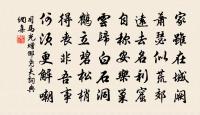 家雖在城闕
蕭瑟似荒郊
遠去名利窟
自稱安樂巢
雲歸白石洞
鶴立碧松梢
得喪非吾事
何須更解嘲
司馬光贈邵堯夫詞典
網集